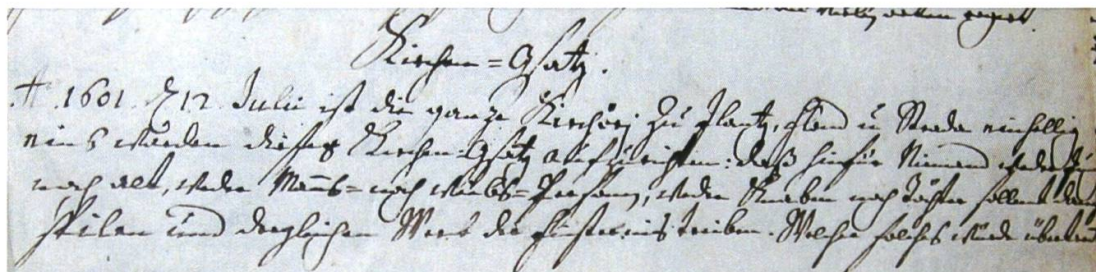 Kirchen=Gsatz.
1601 d 12 Julii ist die ganze Kirchöri zu Flantz, und Strada einhellig
eins worden dieses Kirchen Gsatz aufzurichten: daß hinfür Niemand weder
noch alt, weder Manns= noch Weibs=Persohnen, weder Knaben noch Töchter sollent
spilen und dergleichen Werk der Finsternis treiben. Welcher solches würde